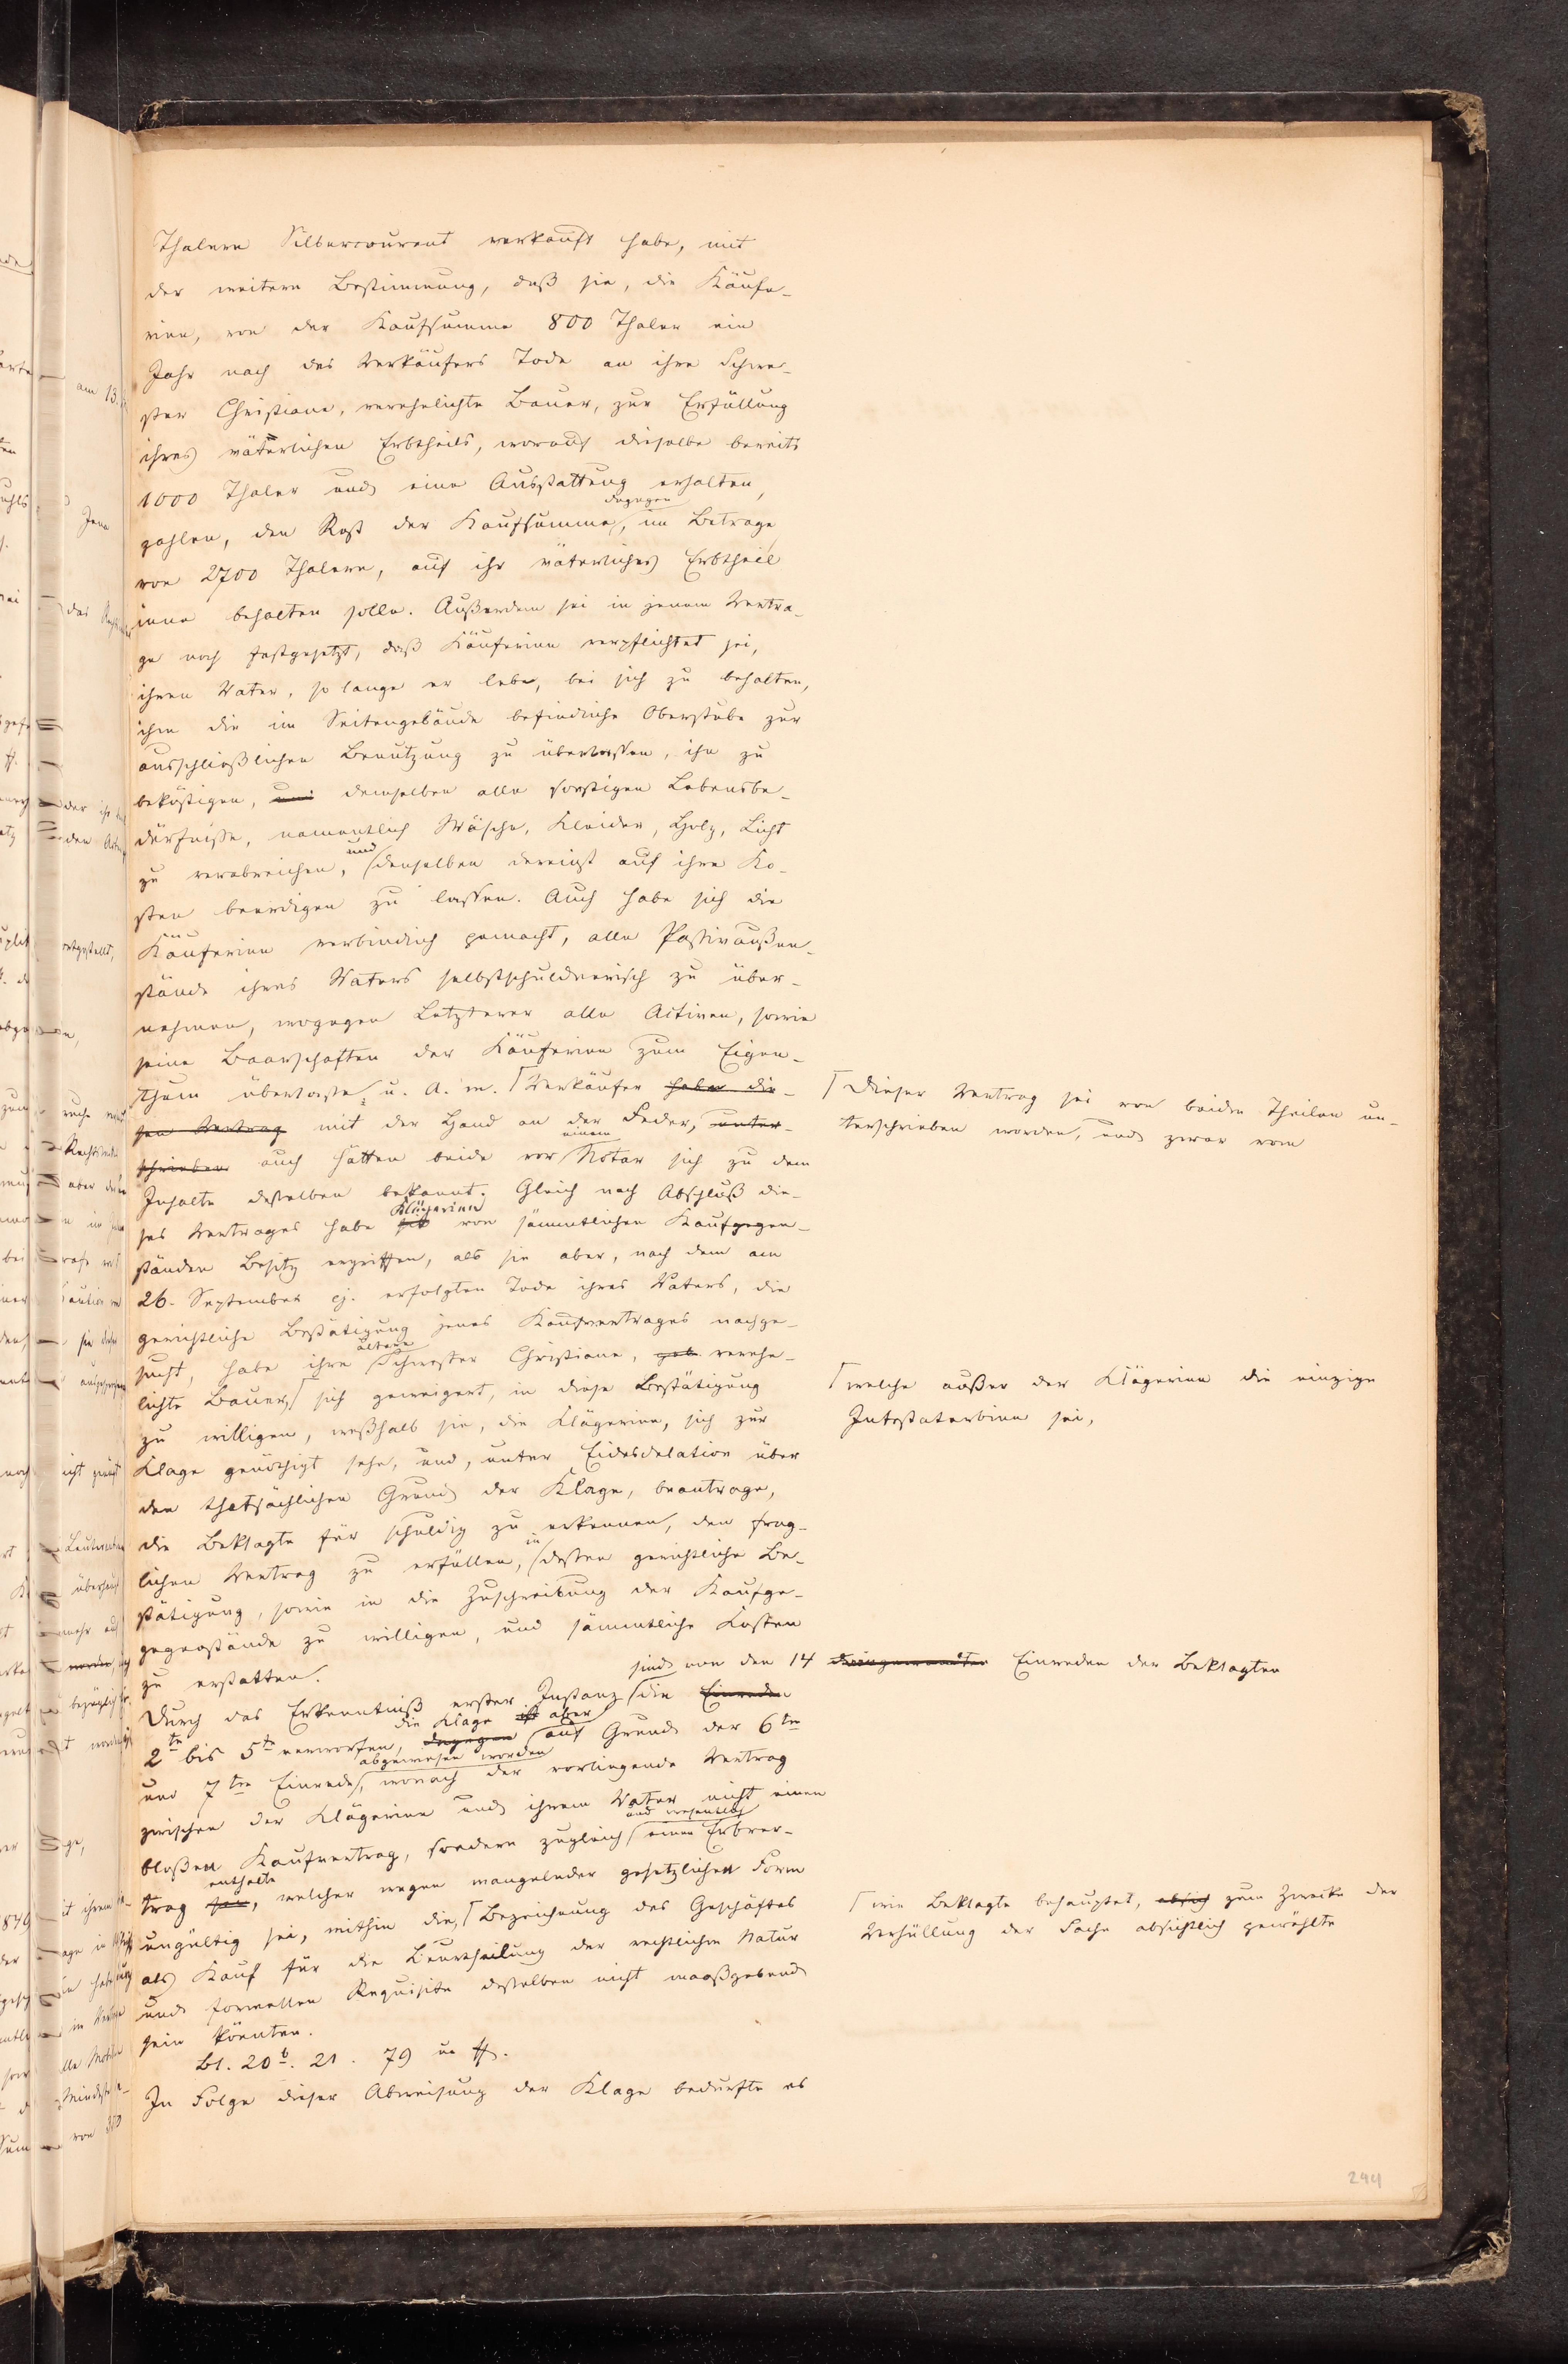 Thalern Silbercourant verkauft habe, mit
der weitern Bestimmung, daß sie, die Käufe-
rinn, von der Kaufsumme 800 Thaler ein
Jahr nach des Verkäufers Tode an ihre Schwe-
ster Christiane, verehelichte Bauer, zur Erfüllung
ihres väterlichen Erbtheils, worauf dieselbe bereits
1000 Thaler und eine Ausstattung erhalten,
dagegen
zahlen, den Rest der Kaufsumme, im Betrage
von 2700 Thalern, auf ihr väterliches Erbtheil
inne behalten solle. Außerdem sei in jenem Vertra-
ge noch festgesetzt, daß Käuferinn verpflichtet sei,
ihren Vater, so lange er lebe, bei sich zu behalten,
ihm die im Seitengebäude befindliche Oberstube zur
ausschließlichen Benutzung zu überlassen, ihn zu
beköstigen, und demselben alle sonstigen Lebensbe-
dürfnisse, namentlich Wäsche, Kleider, Holz, Licht
und
zu verabreichen, denselben dereinst auf ihre Ko-
sten beerdigen zu lassen. Auch habe sich die
Käuferinn verbindlich gemacht, alle Passivaußen-
stände ihres Vaters selbstschuldnerisch zu über-
nehmen, wogegen Letzterer alle Activen, sowie
seine Baarschaften der Käuferinn zum Eigen-
thum überlasse, u. A. m. Verkäufer habe die-
Dieser Vertrag sei von beiden Theilen un-
terschrieben worden, und zwar vom
sen Vertrag mit der Hand an der Feder, unter-
einem
schrieben auch hätten beide vor Notar sich zu dem
Inhalte desselben bekannt. Gleich nach Abschluß die-
Klägerinn
ses Vertrages habe sie von sämmtlichen Kaufgegen-
ständen Besitz ergriffen, als sie aber, nach dem am
26. September ej. erfolgten Tode ihres Vaters, die
gerichtliche Bestätigung jenes Kaufvertrages nachge-
ältere
sucht, habe ihre Schwester Christiane, geb verehe-
lichte Bauer, sich geweigert, in diese Bestätigung
welche außer der Klägerinn die einzige
Intestaterbinn sei,
zu willigen, weßhalb sie, die Klägerinn, sich zur
Klage genöthigt sehe, und, unter Eidesdelation über
den thatsächlichen Grund der Klage, beantrage,
die Beklagte für schuldig zu erkennen, den frag-
in
lichen Vertrag zu erfüllen, dessen gerichtliche Be-
stätigung, sowie in die Zuschreibung der Kaufge-
gegenstände zu willigen, und sämmtliche Kosten
zu erstatten.
sind von den 14 Einreden der Beklagten
Durch das Erkenntniß erster Instanz die Einreden
die Klage ist aber
2te bis 5te verworfen, dagegen auf Grund der 6ten
abgewiesen worden
und 7ten Einrede, wonach der vorliegende Vertrag
zwischen der Klägerinn und ihrem Vater nicht einen
und wesentlich
bloßen Kaufvertrag, sondern zugleich einen Erbver-
enthalte
trag sei, welcher wegen mangelnder gesetzlichen Form
ungültig sei, mithin die, Bezeichnung des Geschäftes
wie Beklagte behauptet, absich zum Zwecke der
Verhüllung der Sache absichtlich gewählte
als Kauf für die Beurtheilung der rechtlichen Natur
und formellen Requisite desselben nicht maaßgebend
sein könnten.
Bl. 20b. 21. 79 u ff.
In Folge dieser Abweisung der Klage bedurfte es
244